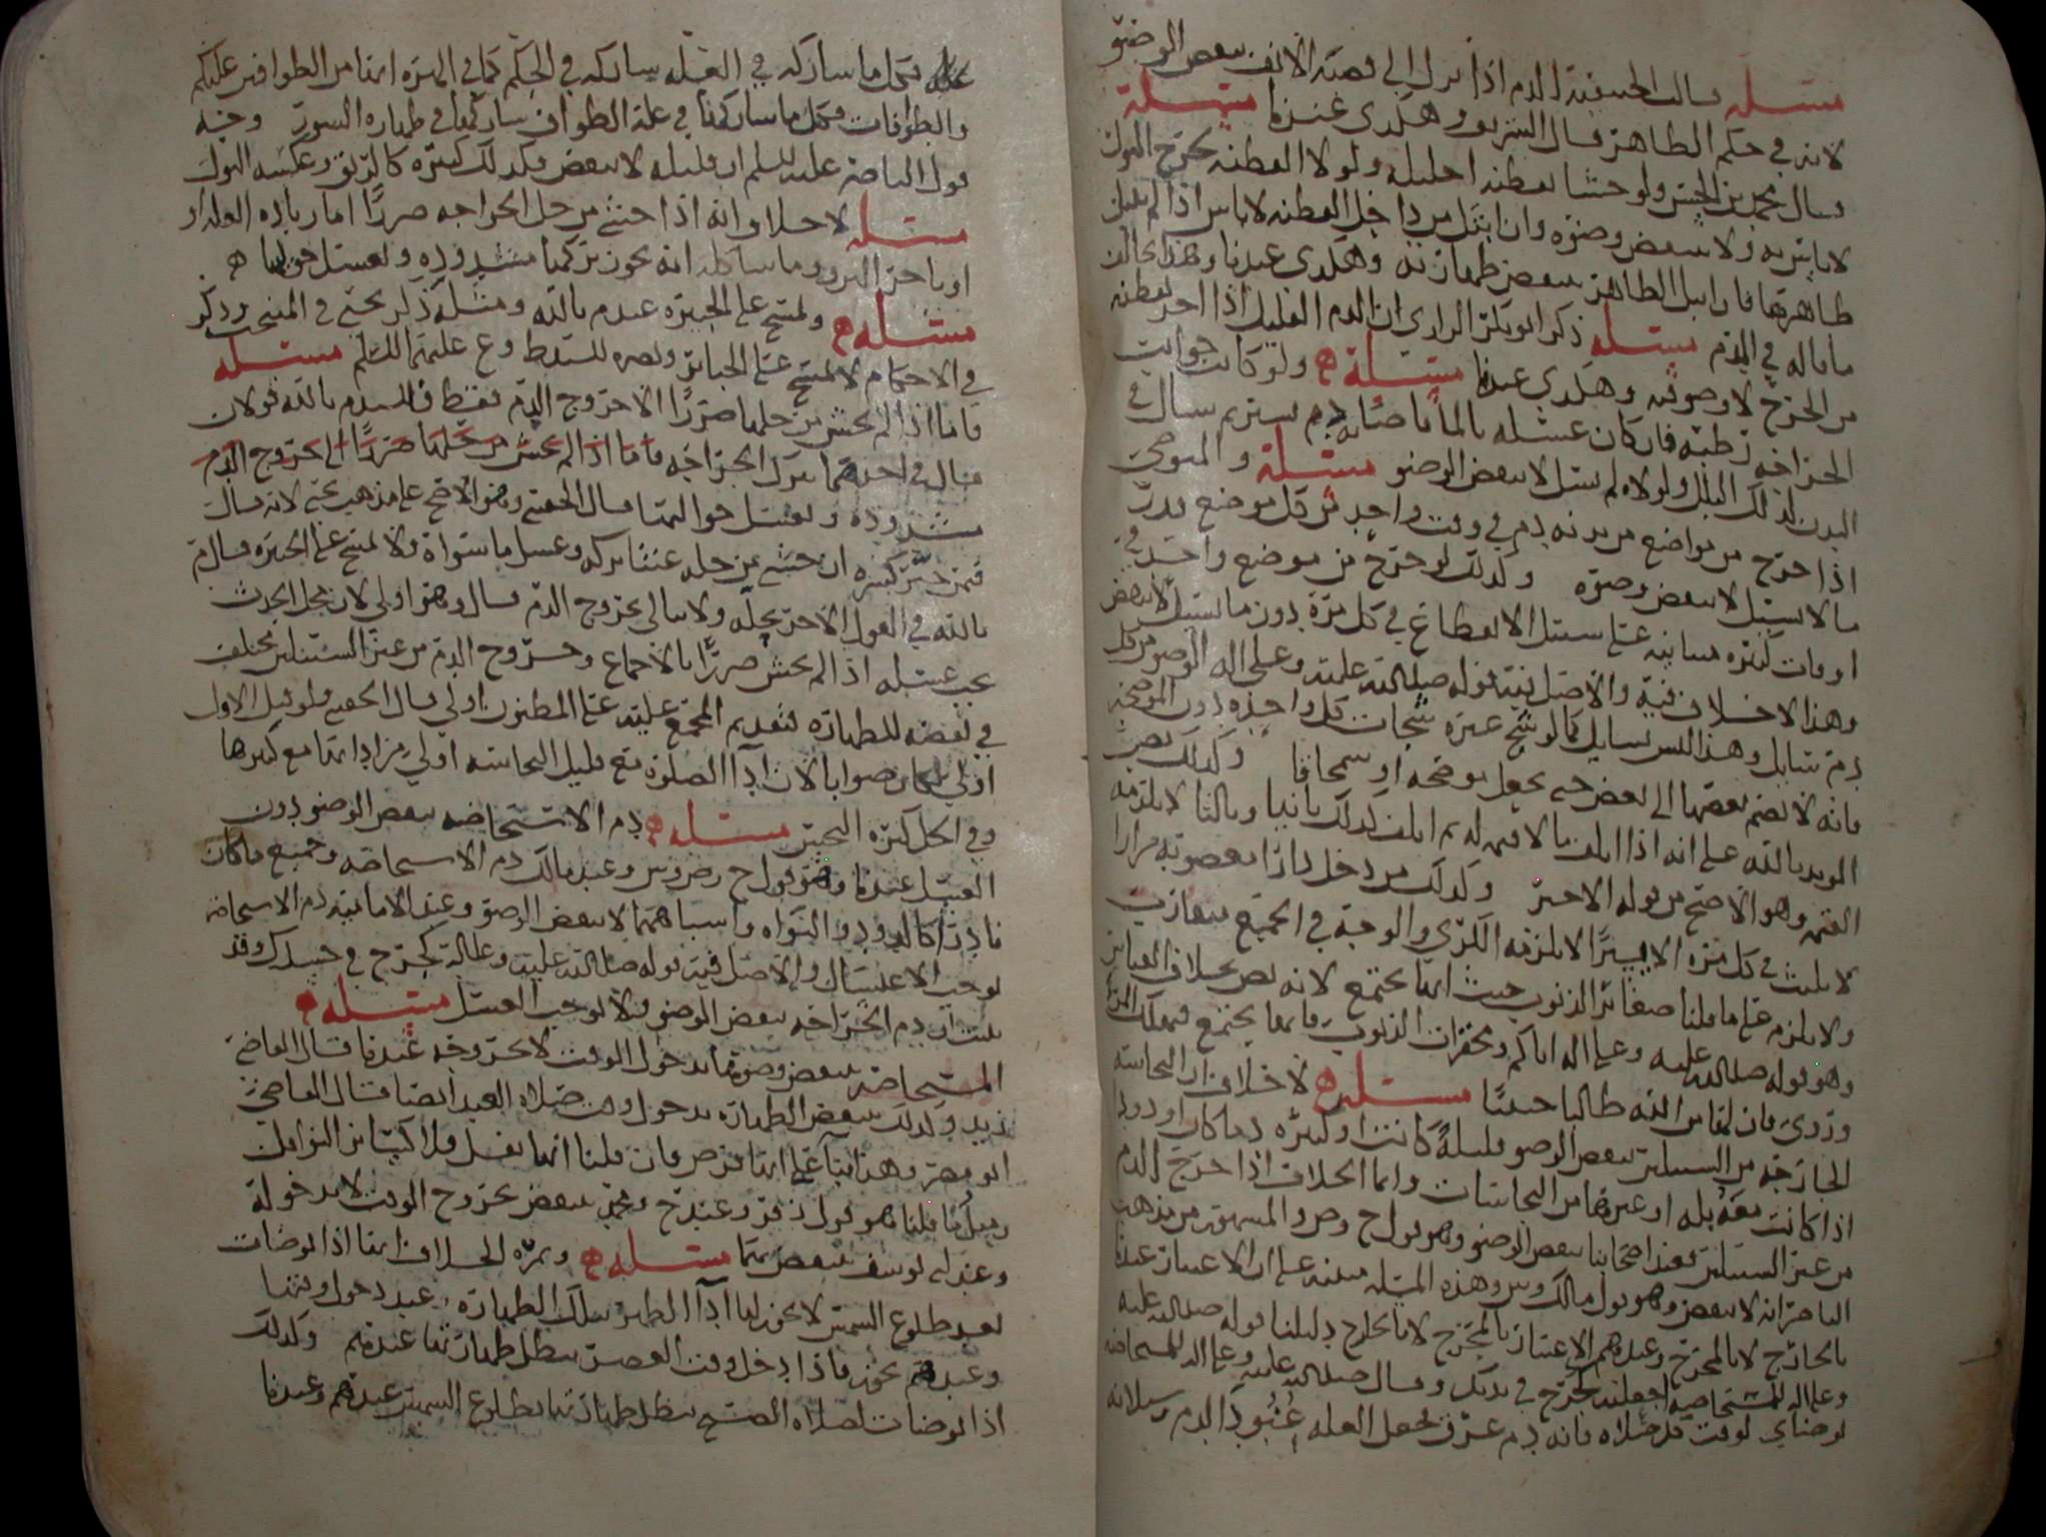 مسئله قالت الحنفية الدم اذا نزل الى قصبة الانف نقض الوضوء
لانه في حكم الظاهر قال السيد وهكذى عندنا مسئلة
قال محمد بن الحسن ولو حشا بقطنه احليله ولولا القطنه لخرج البول
لا باس به ولا ينقض وضوه وان ابتل من داخل القطنه لا باس اذا لم يبتل
ظاهرها فان ابتل الظاهر ينقض طهارته وهكذى عندنا وهذا بخلاف
ما قاله في الدم مسئله ذكر ابو بكر الرازي ان الدم القليل اذا اخذ بقطنه
من الجرح لا وضوء فيه وهكذى عندنا مسئلة ولو كانت جوانب
الجراحه رطبه فان كان غسله بالما فاصابه دم يسير ثم سال في
البدن لذلك البلل ولولاه لم يسل لا ينقض الوضوء مسئلة والمتوضي
اذا خرج من مواضع من بدنه دم في وقت واحد من كل موضع قدر
ما لا يسيل لا ينقض وضوه وكذلك لو خرج من موضع واحد في
اوقات كثيره متباينه على سبيل الانقطاع في كل مرة دون ما يسيل لا ينقض
وهذا لا خلاف فيه والاصل فيه قوله صلى الله عليه وعلى اله الوضوء من كل
دم سايل وهذا ليس بسايل كما لو شج عشرة شجات كل واحده دون الموضحه
فانه لا يضم بعضها الى بعض حتى يجعل موضحه او سمحاقا وكذلك نص
المويد بالله على انه اذا اتلف ما لا قيمه له ثم اتلف كذلك ثانيا وثالثا لا يلزمه
القيمه وهو الاصح من قوله الاخير وكذلك من دخل دارا مغصوبه مرارا
لا يلبث في كل مرة الا يسيرا لا يلزمه الكرى والوجه في الجميع متقارب
ولا يلزم على ما قلنا صغائر الذنوب حيث انها تجتمع لانه نص بخلاف القياس
وهو قوله صلى الله عليه وعلى اله اياكم ومحقرات الذنوب فانها تجتمع فتهلك المرء
وروي فان لها من الله طالبا حثيثا مسئله لا خلاف ان النجاسه
الخارجه من السبيلين تنقض الوضو قليلة كانت او كثيره دما كان او دودا
اذا كانت معه بله او غيرها من النجاسات وانما الخلاف اذا خرج الدم
من غير السبيلين فعند اصحابنا ينقض الوضو وهو قول ح وص والمشهور من مذهب
الناصر انه لا ينقض وهو قول مالك وش وهذه المسئله مبنيه على ان الاعتبار عندنا
بالخارج لا بالمخرج وعندهم الاعتبار بالمخرج لا بالخارج دليلنا قوله صلى الله عليه
وعلى اله للمستحاضه اجعليه كجرح في بدنك وقال صلى الله عليه وعلى اله للمستحاضه
توضاي لوقت كل صلاه فانه دم عرق فجعل العله عنود الدم وسيلانه
فكل ما شاركه في العله شاركه في الحكم كما في الهره انها من الطوافين عليكم
والطوافات فكل ما شاركها في علة الطواف شاركها في طهاره السور وجه
قول الناصر عليه السلم ان قليله لا ينقض فكذلك كثيره كالريق وعكسه البول
مسئله لا خلاف انه اذا خشي من حل الجراحه ضررا اما زياده العله او
او تاخر البرو وما شاكله انه يجوز تركها مشدوده ويغسل حواليها
مسئله ويمسح على الجبيره عند م بالله ومثله ذكر يحيى في المنتخب وذكر
في الاحكام لا يمسح على الجبائر ونصره للسيد ط و ع عليهما السلم مسئله
فاما اذا لم يخش من حلها ضررا الا خروج الدم فقط فللسيد م بالله قولان
قال في احدهما تترك الجراحه فاما اذا لم يخش من حلها ضررا الا خروج الدم
مشدوده ويغسل حواليها قال الحقيني وهو الاصح على مذهب يحيى لانه قال
فيمن جبر كسره ان خشي من حله عنتا تركه وغسل ما سواه ولا يمسح على الجبيره قال م
بالله في القول الاخر يحله ولا يبالي بخروج الدم قال وهو اولى لان محل الحدث
يجب غسله اذا لم يخش ضررا بالاجماع وخروج الدم من غير السبيلين مختلف
في نقضه للطهاره فتقديم المجمع عليه على المظنون اولى قال الحقيني ولو قيل الاول
اولى لكان صوابا لان ادا الصلوة مع قليل النجاسه اولى من ادائها مع كثيرها
وفي الحل كثره النجس مسئله دم الاستحاضه ينقض الوضو دون
الغسل عندنا وهو قول ح وص وش وعند مالك دم الاستحاضه وجميع ما كان
نادرا كالدود والنواه واشباههما لا ينقض الوضو وعند الاماميه دم الاستحاضه
يوجب الاغتسال والاصل فيه قوله صلى الله عليه وعلى اله كجرح في جسدك وقد
ثبت ان دم الجراحه ينقض الوضو ولا يوجب الغسل مسئله
المستحاضه ينقض وضوها بدخول الوقت لا بخروجه عندنا قال القاضي
زيد وكذلك ينقض الطهاره بدخول وقت صلاه العيد ايضا قال القاضي
ابو مضر وهذا بناء على انها فرض فان قلنا انها نفل فلا كسائر النوافل
ومثل ما قلنا هو قول زفر وعند ح ومحمد ينقض بخروج الوقت لا بدخوله
وعند ابي يوسف ينقض بهما مسئله وثمرة الخلاف انها اذا توضات
بعد طلوع الشمس لا يجوز لها ادا الظهر بتلك الطهاره عند دخول وقتها
وعندهم يجوز فاذا دخل وقت العصر بطل طهارتها عندهم وكذلك
اذا توضات لصلاه الصبح بطل طهارتها بطلوع الشمس عندهم وعندنا